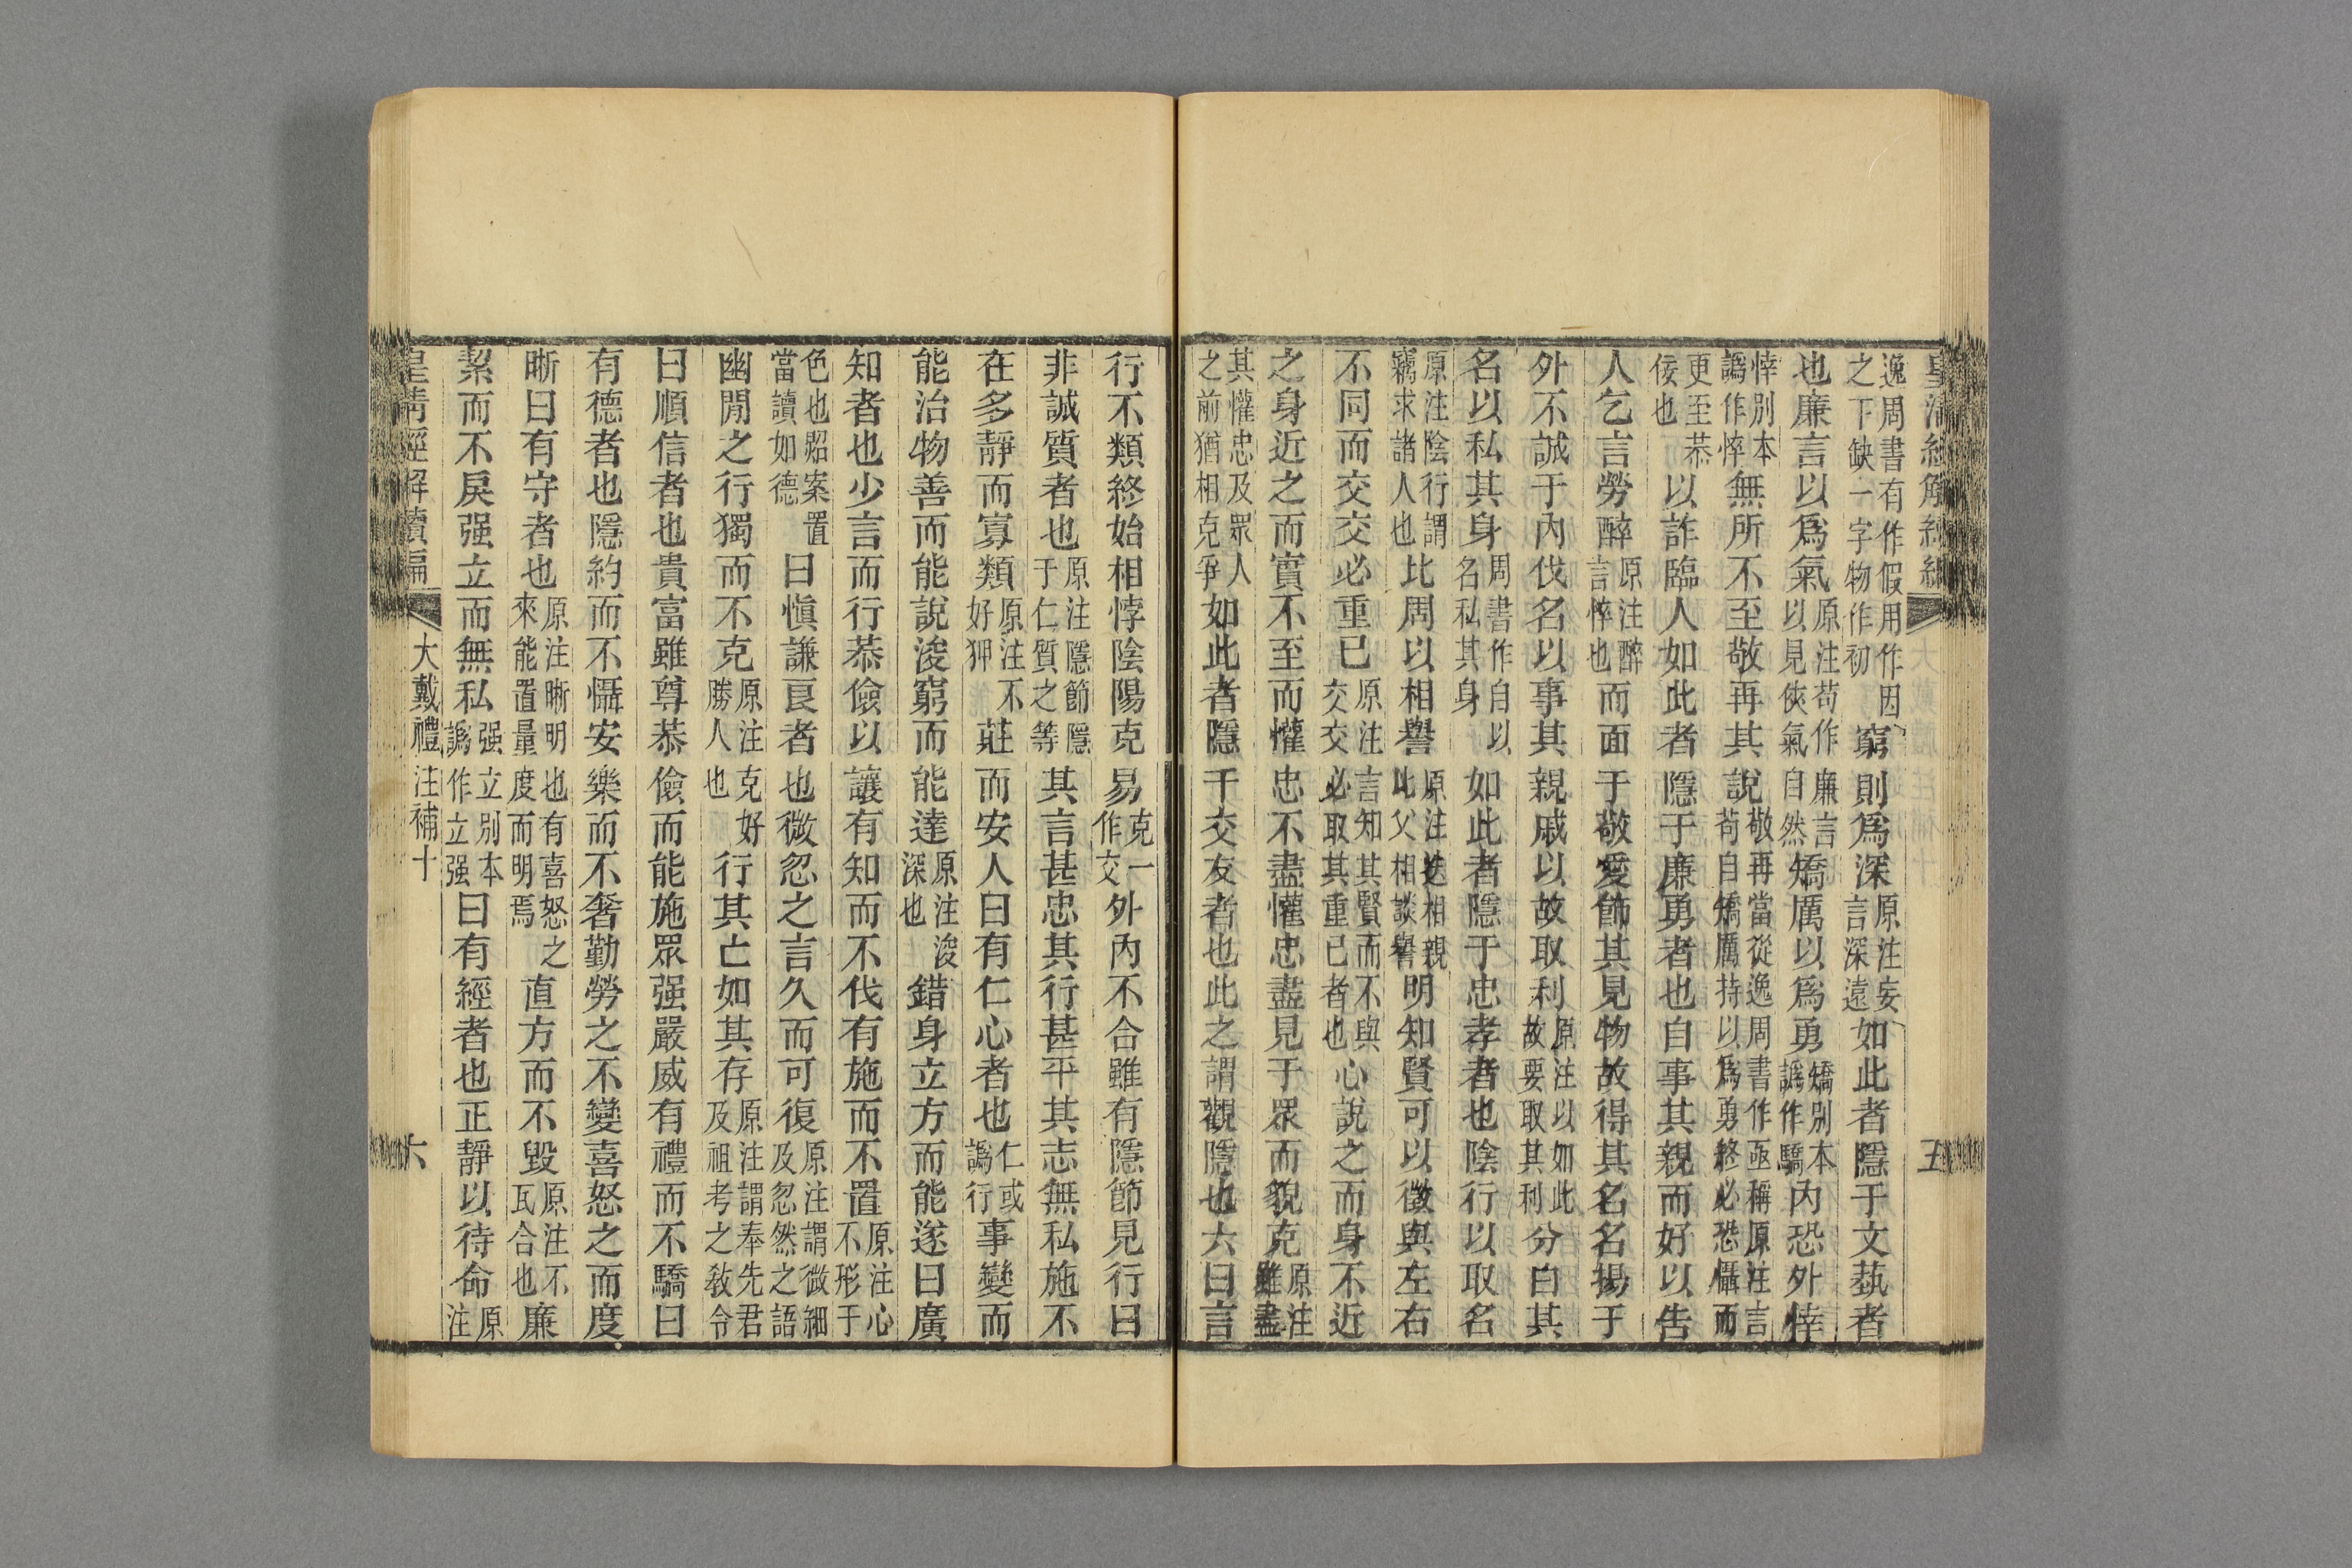 皇清經解續編
五
逸周書有作假用作因之下缺一字物作初窮則爲深原注妄言深遠如此者隱于文埶者
也廉言以爲氣原注苟作廉言以見俠氣自然矯厲以爲勇矯別本譌作驕內恐外悻
悻別本譌作悴無所不至敬再其說敬再當從逸周書作亟稱原注言苟自矯厲持以爲勇終必恐懾而
更至恭佞也以詐臨人如此者隱于廉勇者也自事其親而好以告
人乞言勞醉原注醉言悴也而面于敬愛飾其見物故得其名名揚于
外不誠于內伐名以事其親戚以故取利原注以如此故要取其利分白其
名以私其身周書作自以名私其身如此者隱于忠孝者也陰行以取名
原注陰行謂竊求諸人也比周以相譽原注迭相親比父相談譽明知賢可以徵與左右
不同而交交必重已原注言知其賢而不與交交必取其重已者也心說之而身不近
之身近之而實不至而懽忠不盡懽忠盡見于眾而貌克原注雖盡
其懽忠及眾人之前猶相克爭如此者隱于交友者也此之謂觀隱也六曰言
行不類終始相悖陰陽克易克一作交外內不合雖有隱節見行曰
非誠質者也原注隱節隱于仁質之等其言甚忠其行甚平其志無私施不
在多靜而寡類原注不好狎莊而安人曰有仁心者也仁或譌行事變而
能治物善而能說浚窮而能達原注浚深也錯身立方而能遂曰廣
知者也少言而行恭儉以讓有知而不伐有施而不置原注心不形于
色也照案置當讀如德曰愼謙良者也微忽之言久而可復原注謂微細及忽然之語
幽閒之行獨而不克原注克好勝人也行其亡如其存原注謂奉先君及祖考之敎令
曰順信者也貴富雖尊恭儉而能施眾强嚴威有禮而不驕曰
有德者也隱約而不懾安樂而不奢勤勞之不變喜怒之而度
晰曰有守者也原注晰明也有喜怒之來能置量度而明焉直方而不毀原注不瓦合也廉
絜而不戾强立而無私强立別本譌作立强曰有經者也正靜以待命原注
皇清經解續編
大戴禮注補十
六